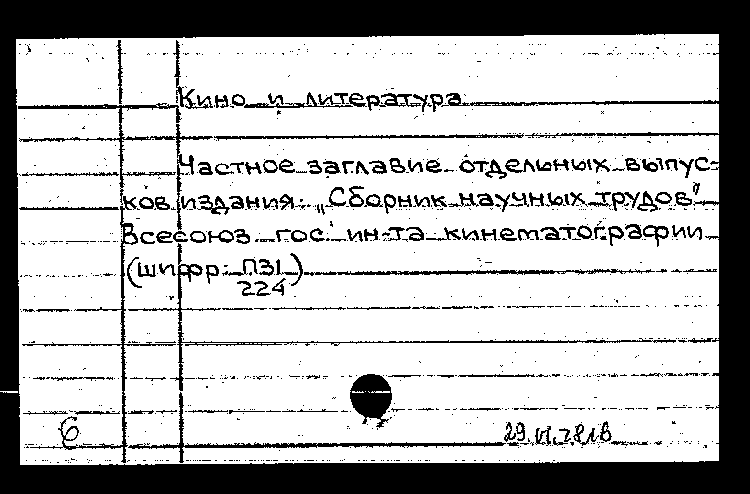 Кино и литература
Частное заглавие отдельных выпус-
ков издания: „Сборник научных трудов"
Всесоюз. гос. ин-та кинематографии
(шифр: П31
224)
6